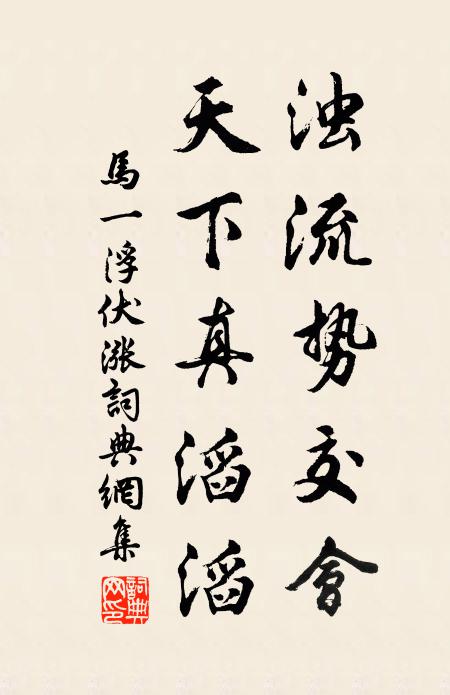 浊流势交會
天下真滔滔
馬一浮伏漲詞典網集
詞典网印